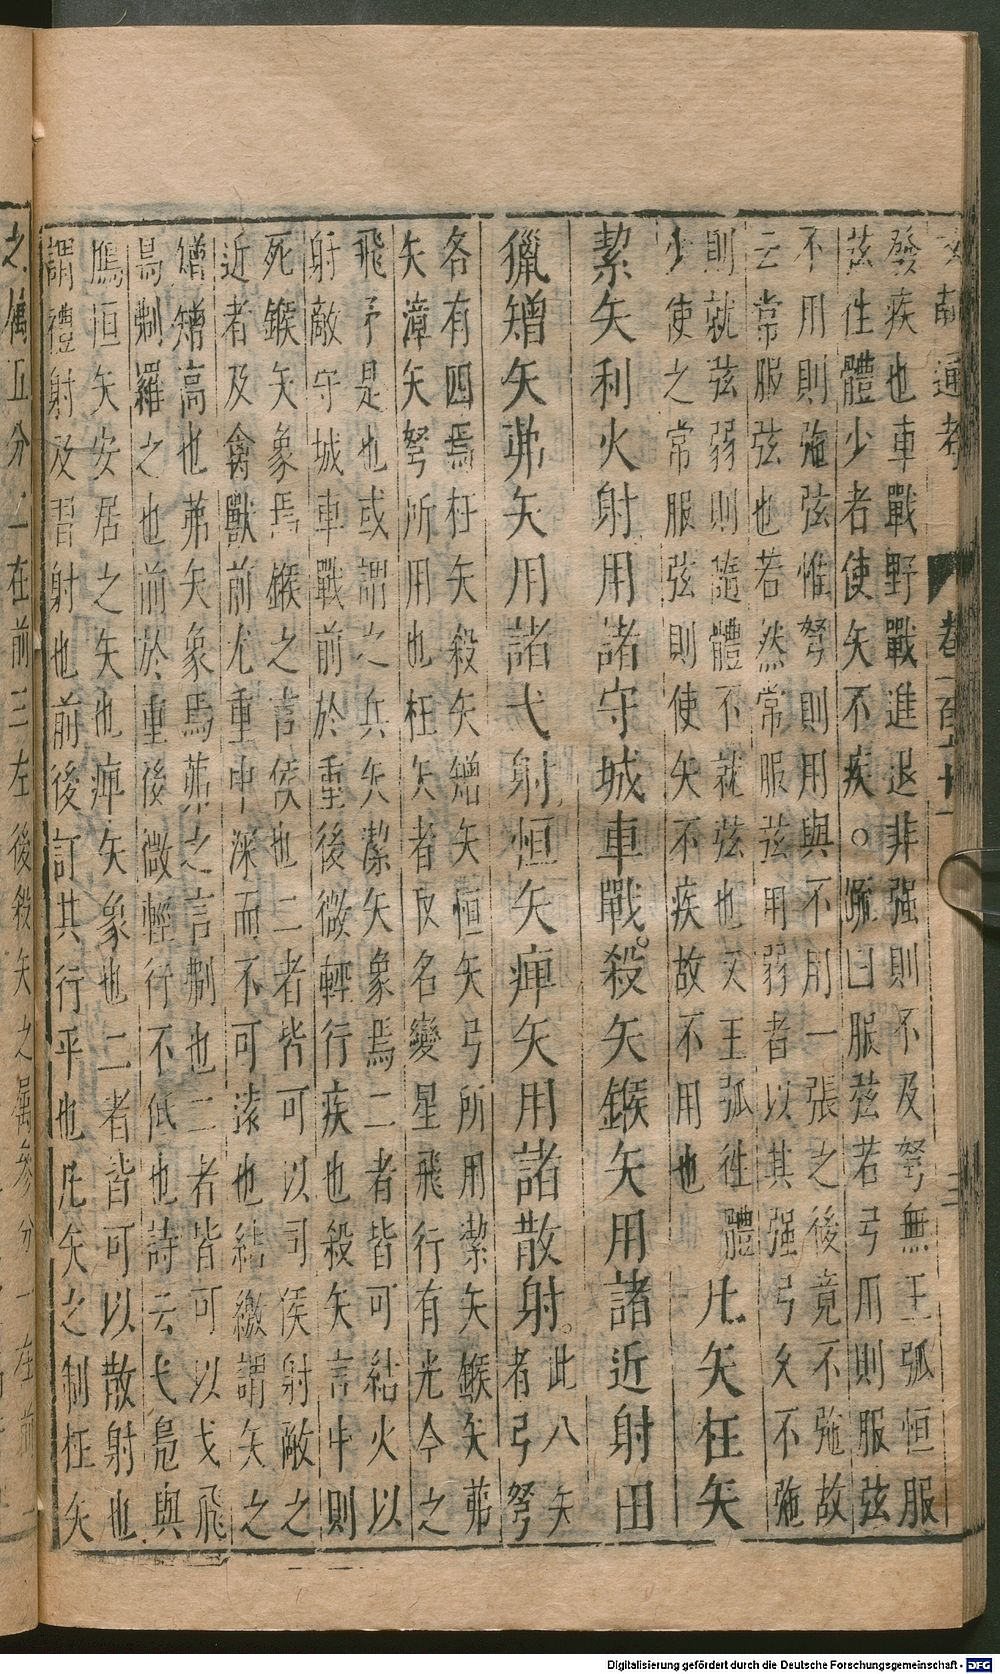 文獻通考 卷一百六十一 三
發疾也車戰野戰進退非强則不及弩無王弧恒服
弦往體少者使矢不疾。疏曰服弦若弓用則服弦
不用則弛弦惟弩則用與不用一張之後竟不弛故
云常服弦也若然常服弦用弱者以其强弓久不弛
則就弦弱則隨體不就弦也又王弧往體
少使之常服弦則使矢不疾故不用也
凡矢枉矢
絜矢利火射用諸守城車戰。殺矢鍭矢用諸近射田
獵矰矢茀矢用諸弋射恒矢痺矢用諸散射。
此八矢
者弓弩
各有四焉枉矢殺矢矰矢恒矢弓所用潔矢鍭矢茀
矢漳矢弩所用也枉矢者取名變星飛行有光今之
飛矛是也或謂之兵矢潔矢象焉二者皆可結火以
射敵守城車戰前於重後微輕行疾也殺矢言中則
死鍭矢象焉鍭之言候也二者皆可以司侯射敵之
近者及禽獸前尤重中深而不可遠也結繳謂矢之
矰矰高也茀矢象焉茀之言刜也二者皆可以弋飛
鳥刜羅之也前於重後微輕行不低也詩云弋鳧與
鴈恒矢安居之矢也痺矢象也二者皆可以散射也
謂禮射及習射也前後訂其行平也凡矢之制枉矢
之屬五分一在前三左後殺矢之屬參分一在前
Digitalisierung gefördert durch die Deutsche Forschungsgemeinschaft - DFG